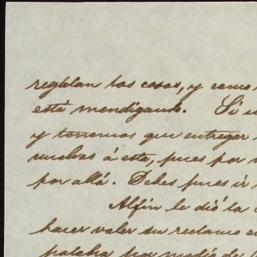 regblan las cosas, y como
está mendigando. Si u
y tenemos que entregar
muchas á esta, pues por
por allá. Debes pues ir
Alfin le dió la
hacer valer su reclamo en
palabra por medio de